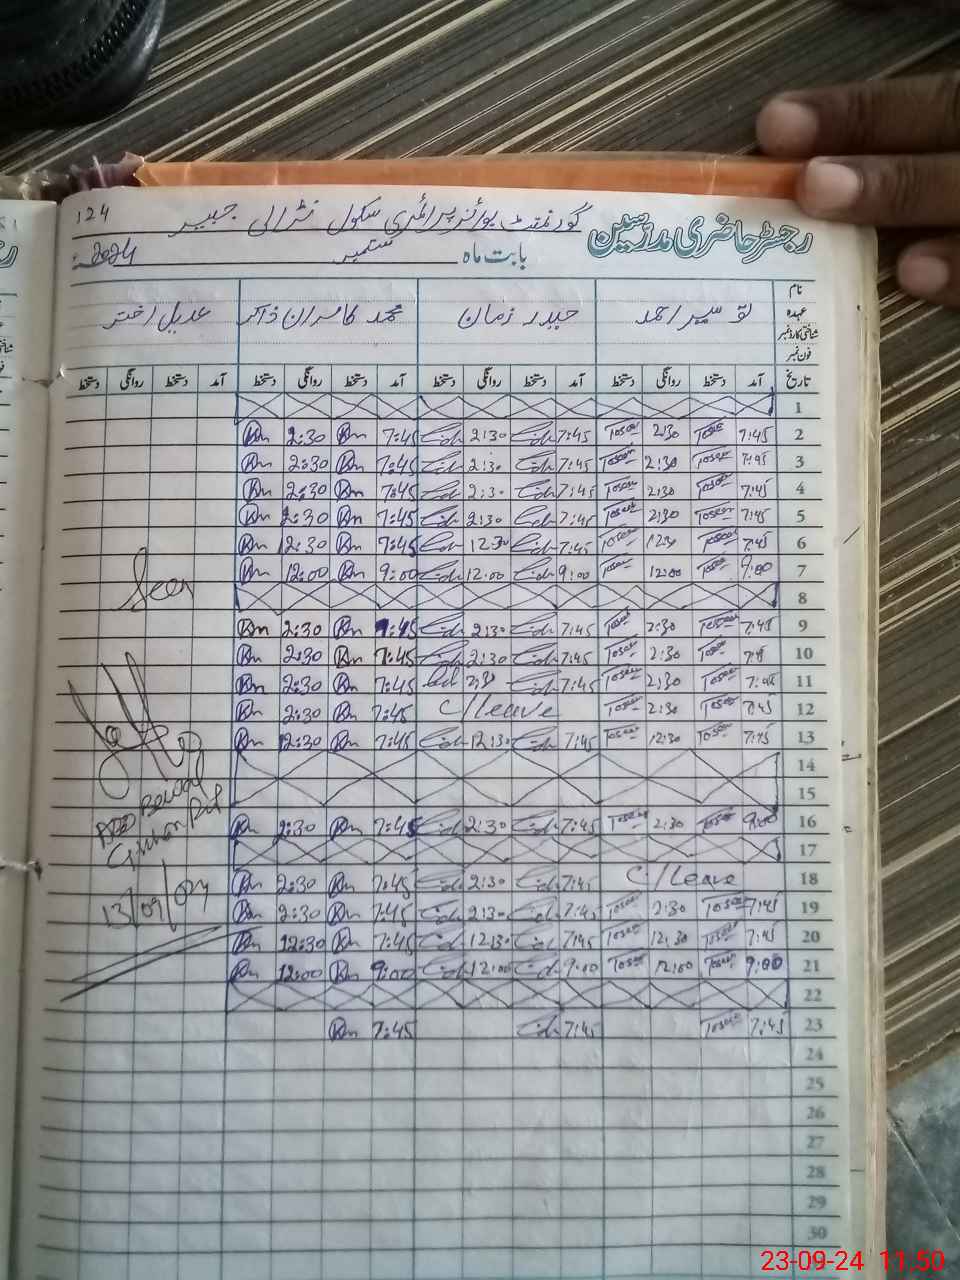 124
گورنمنٹ بوائز پرائمری سکول
رجسٹر حاضری مدرسین
بابت ماہ ستمبر 2024
نام
عہدہ
شناختی کارڈ نمبر
فون نمبر
توسیر احمد حیدر زمان محمد کامران ذاکر عدیل اختر
تاریخ آمد دستخط روانگی دستخط آمد دستخط روانگی دستخط آمد دستخط روانگی دستخط آمد دستخط روانگی دستخط
1
2 7:45 Toseer 2:30 Toseer 7:45 2:30 7:45 Km 2:30 Km
3 7:45 Toseer 2:30 Toseer 7:45 2:30 7:45 Km 2:30 Km
4 7:45 Toseer 2:30 Toseer 7:45 2:30 7:45 Km 2:30 Km
5 7:45 Toseer 2:30 Toseer 7:45 2:30 7:45 Km 2:30 Km
6 7:45 Toseer 12:30 Toseer 7:45 12:30 7:45 Km 12:30 Km
7 9:00 Toseer 12:00 Toseer 9:00 12:00 9:00 Km 12:00 Km
Seen
8
9 7:45 Toseer 2:30 Toseer 7:45 2:30 7:45 Km 2:30 Km
10 7:45 Toseer 2:30 Toseer 7:45 2:30 7:45 Km 2:30 Km
11 7:45 Toseer 2:30 Toseer 7:45 2:30 7:45 Km 2:30 Km
12 7:45 Toseer 2:30 Toseer C/leave 7:45 Km 2:30 Km
13 7:45 Toseer 12:30 Toseer 7:45 12:30 7:45 Km 12:30 Km
14
15
16 9:00 Toseer 2:30 Toseer 7:45 2:30 7:45 Km 2:30 Km
17
18 C/Leave 7:45 2:30 7:45 Km 2:30 Km
13/09/024
19 7:45 Toseer 2:30 Toseer 7:45 2:30 7:45 Km 2:30 Km
20 7:45 Toseer 12:30 Toseer 7:45 12:30 7:45 Km 12:30 Km
21 9:00 Toseer 12:00 Toseer 9:00 12:00 9:00 Km 12:00 Km
22
23 7:45 Toseer 7:45 7:45 Km
24
25
26
27
28
29
30
23-09-24 11:50